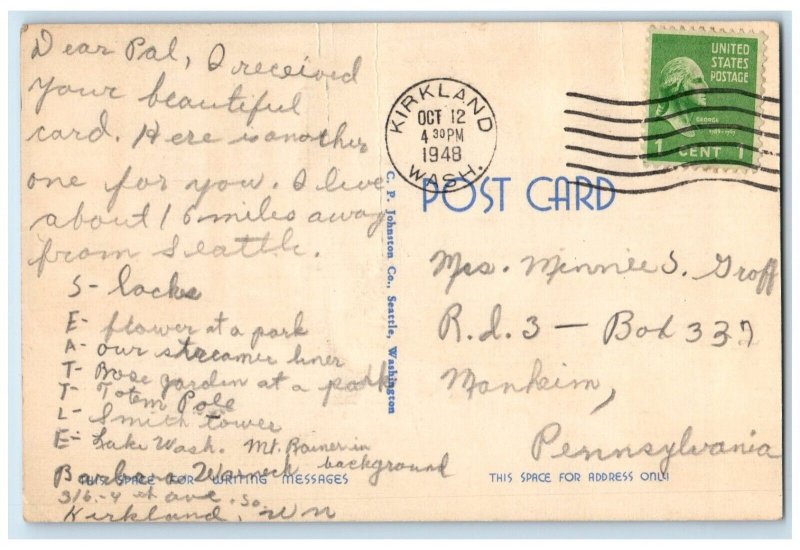 Dear Pal, I received
your beautiful
card. Here is another
one for you. I live
about 16 miles away
from Seattle.
S- locks
E- flower at a park
A- our streamer liner
T- Rose garden at a park
T- Totem Pole
L- Smith tower
E- Lake Wash. Mt. Rainer in
background
Barbara Warneck
THIS SPACE FOR WRITING MESSAGES
316-4th ave. So.
Kirkland, Wn
C. P. Johnston Co., Seattle, Washington
KIRKLAND
OCT 12
4 30 PM
1948
WASH.
UNITED
STATES
POSTAGE
GEORGE
1 CENT 1
POST CARD
Mrs. Minnie S. Groff
R.d. 3 — Box 337
Manheim,
Pennsylvania
THIS SPACE FOR ADDRESS ONLY